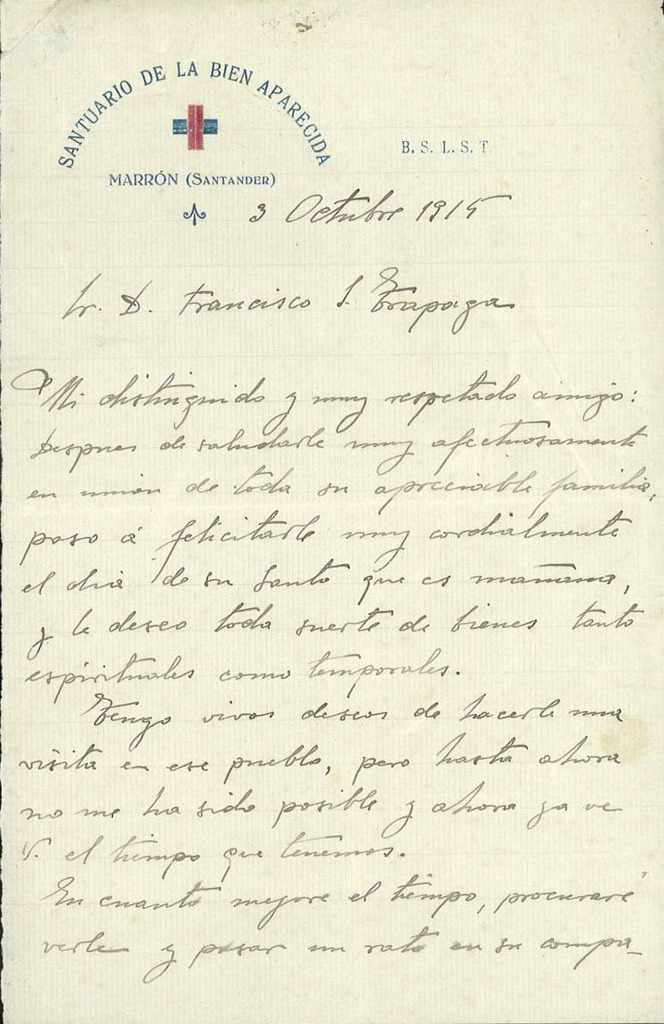 SANTUARIO DE LA BIEN APARECIDA
MARRÓN (SANTANDER)
B. S. L. S. T.
3 Octubre 1915
Sr. D. Francisco S. Trapaga
Mi distinguido y muy respetado amigo:
Despues de saludarle muy afectuosamente
en union de toda su apreciable familia,
paso á felicitarle muy cordialmente
el dia de su Santo que es mañana,
y le deseo toda suerte de bienes tanto
espirituales como temporales.
Tengo vivos deseos de hacerle una
visita en ese pueblo, pero hasta ahora
no me ha sido posible y ahora ya ve
V. el tiempo que tenemos.
En cuanto mejore el tiempo, procuraré
verle y pasar un rato en su compa-